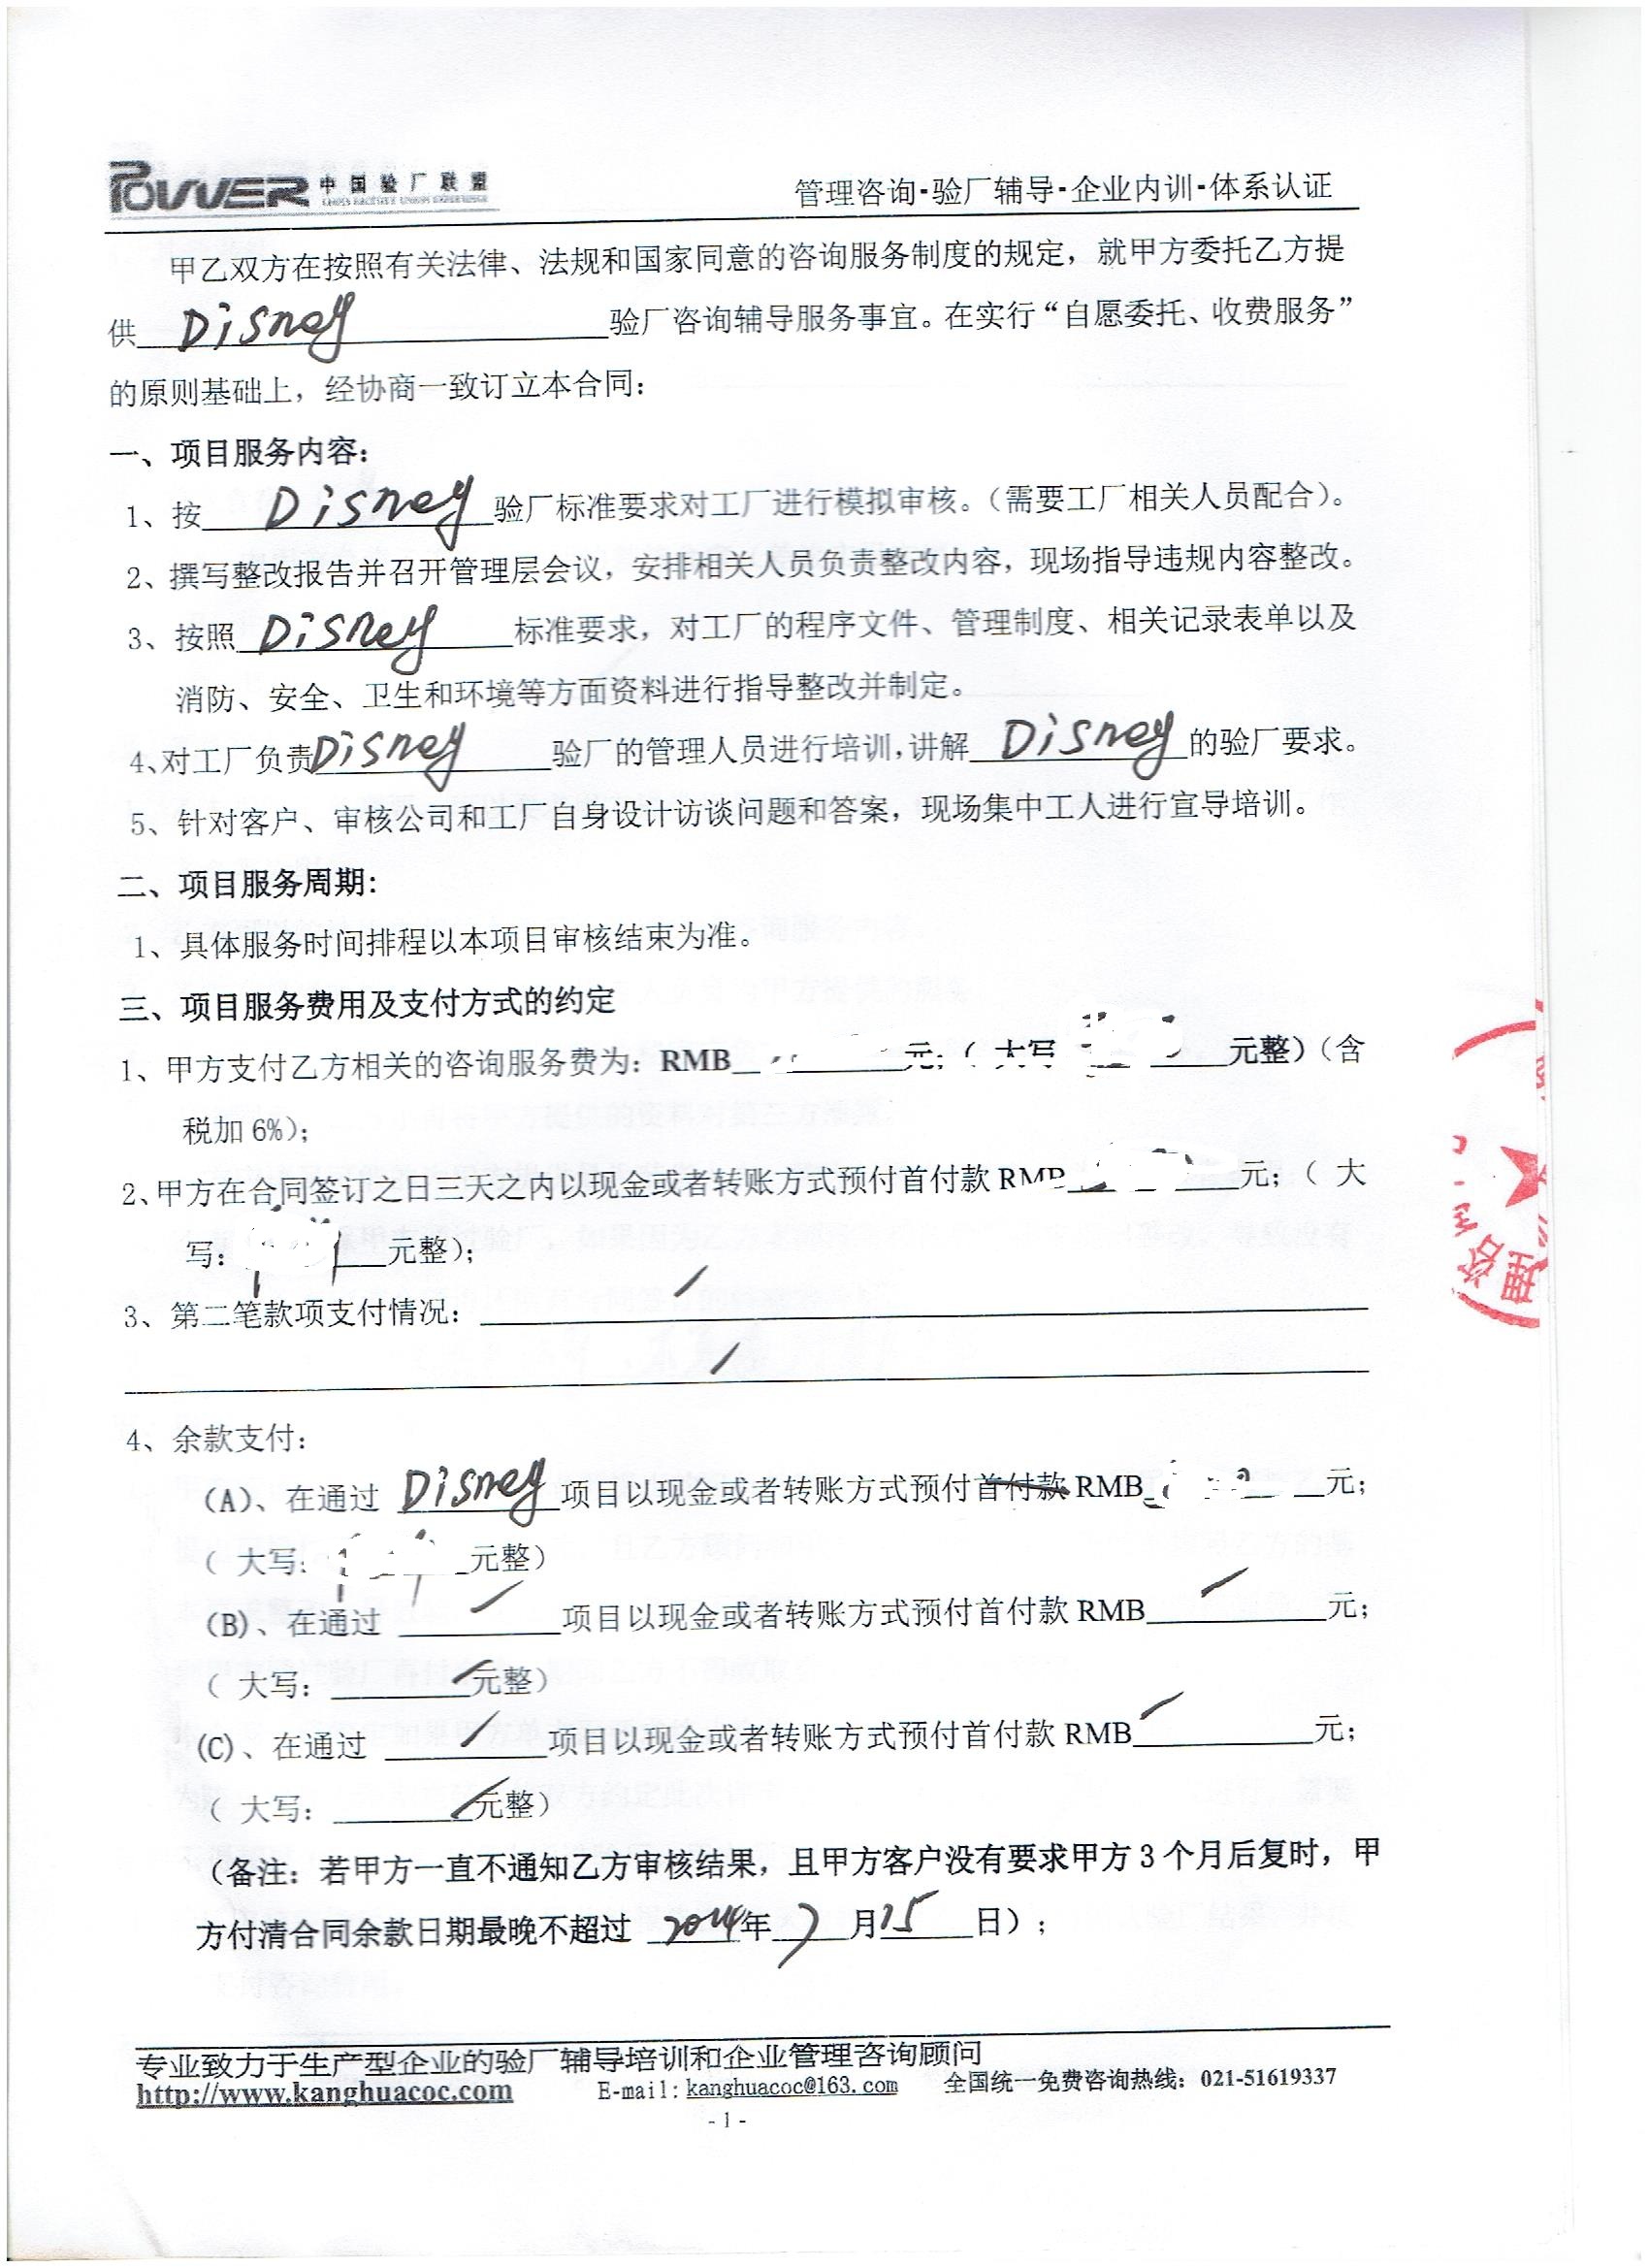 POWER 中国验厂联盟
管理咨询·验厂辅导·企业内训·体系认证
甲乙双方在按照有关法律、法规和国家同意的咨询服务制度的规定，就甲方委托乙方提
供 Disney 验厂咨询辅导服务事宜。在实行“自愿委托、收费服务”
的原则基础上，经协商一致订立本合同：
一、项目服务内容：
1、按 Disney 验厂标准要求对工厂进行模拟审核。（需要工厂相关人员配合）。
2、撰写整改报告并召开管理层会议，安排相关人员负责整改内容，现场指导违规内容整改。
3、按照 Disney 标准要求，对工厂的程序文件、管理制度、相关记录表单以及
消防、安全、卫生和环境等方面资料进行指导整改并制定。
4、对工厂负责 Disney 验厂的管理人员进行培训，讲解 Disney 的验厂要求。
5、针对客户、审核公司和工厂自身设计访谈问题和答案，现场集中工人进行宣导培训。
二、项目服务周期：
1、具体服务时间排程以本项目审核结束为准。
三、项目服务费用及支付方式的约定
1、甲方支付乙方相关的咨询服务费为：RMB 元；（ 大写 元整）（含
税加 6%）；
2、甲方在合同签订之日三天之内以现金或者转账方式预付首付款 RMB 元；（ 大
写： 元整）；
3、第二笔款项支付情况： /
/
4、余款支付：
（A）、在通过 Disney 项目以现金或者转账方式预付首付款 RMB 元；
（ 大写： 元整）
（B）、在通过 / 项目以现金或者转账方式预付首付款 RMB / 元；
（ 大写： / 元整）
（C）、在通过 / 项目以现金或者转账方式预付首付款 RMB / 元；
（ 大写： / 元整）
（备注：若甲方一直不通知乙方审核结果，且甲方客户没有要求甲方 3 个月后复时，甲
方付清合同余款日期最晚不超过 2014 年 7 月 15 日）；
专业致力于生产型企业的验厂辅导培训和企业管理咨询顾问
http://www.kanghuacoc.com E-mail: kanghuacoc@163.com 全国统一免费咨询热线：021-51619337
- 1 -
理咨